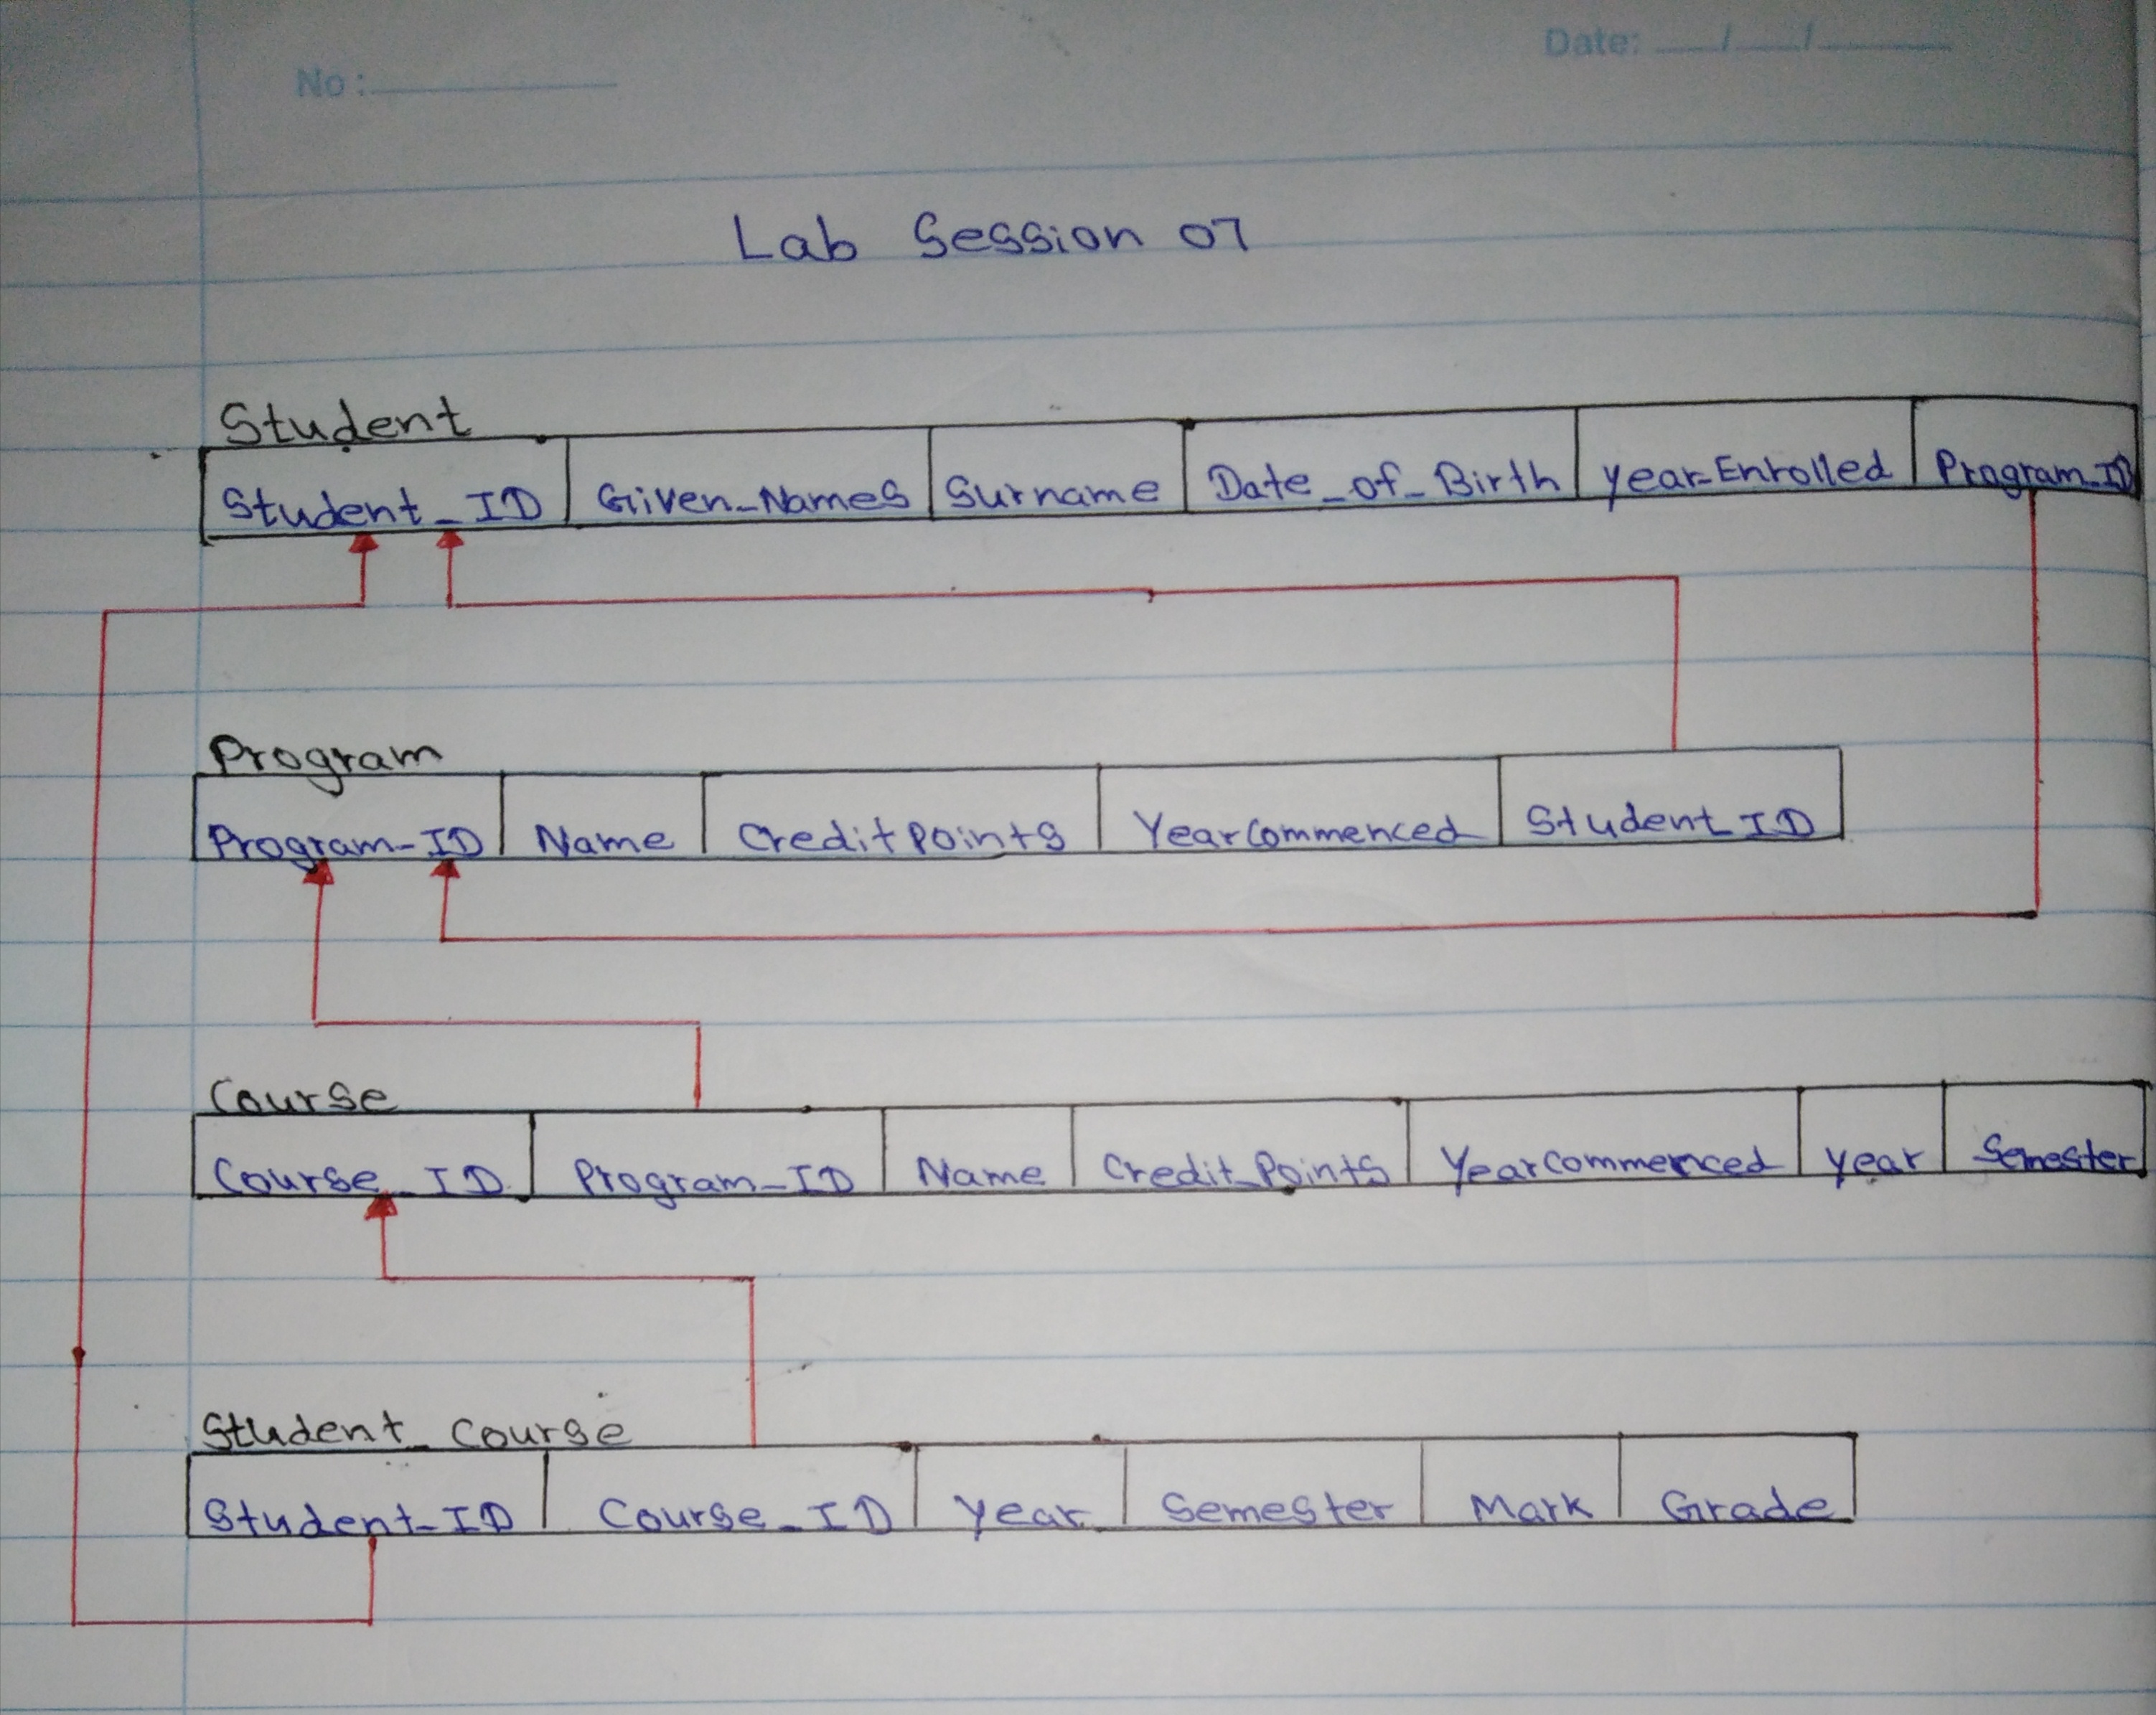 No :
Date: / /
Lab Session 07
Student
Student_ID Given_Names Surname Date_of_Birth year_Enrolled Program_ID
Program
Program_ID Name CreditPoints YearCommenced Student_ID
Course
Course_ID Program_ID Name Credit_Points YearCommenced year Semester
Student_Course
Student_ID Course_ID year Semester Mark Grade